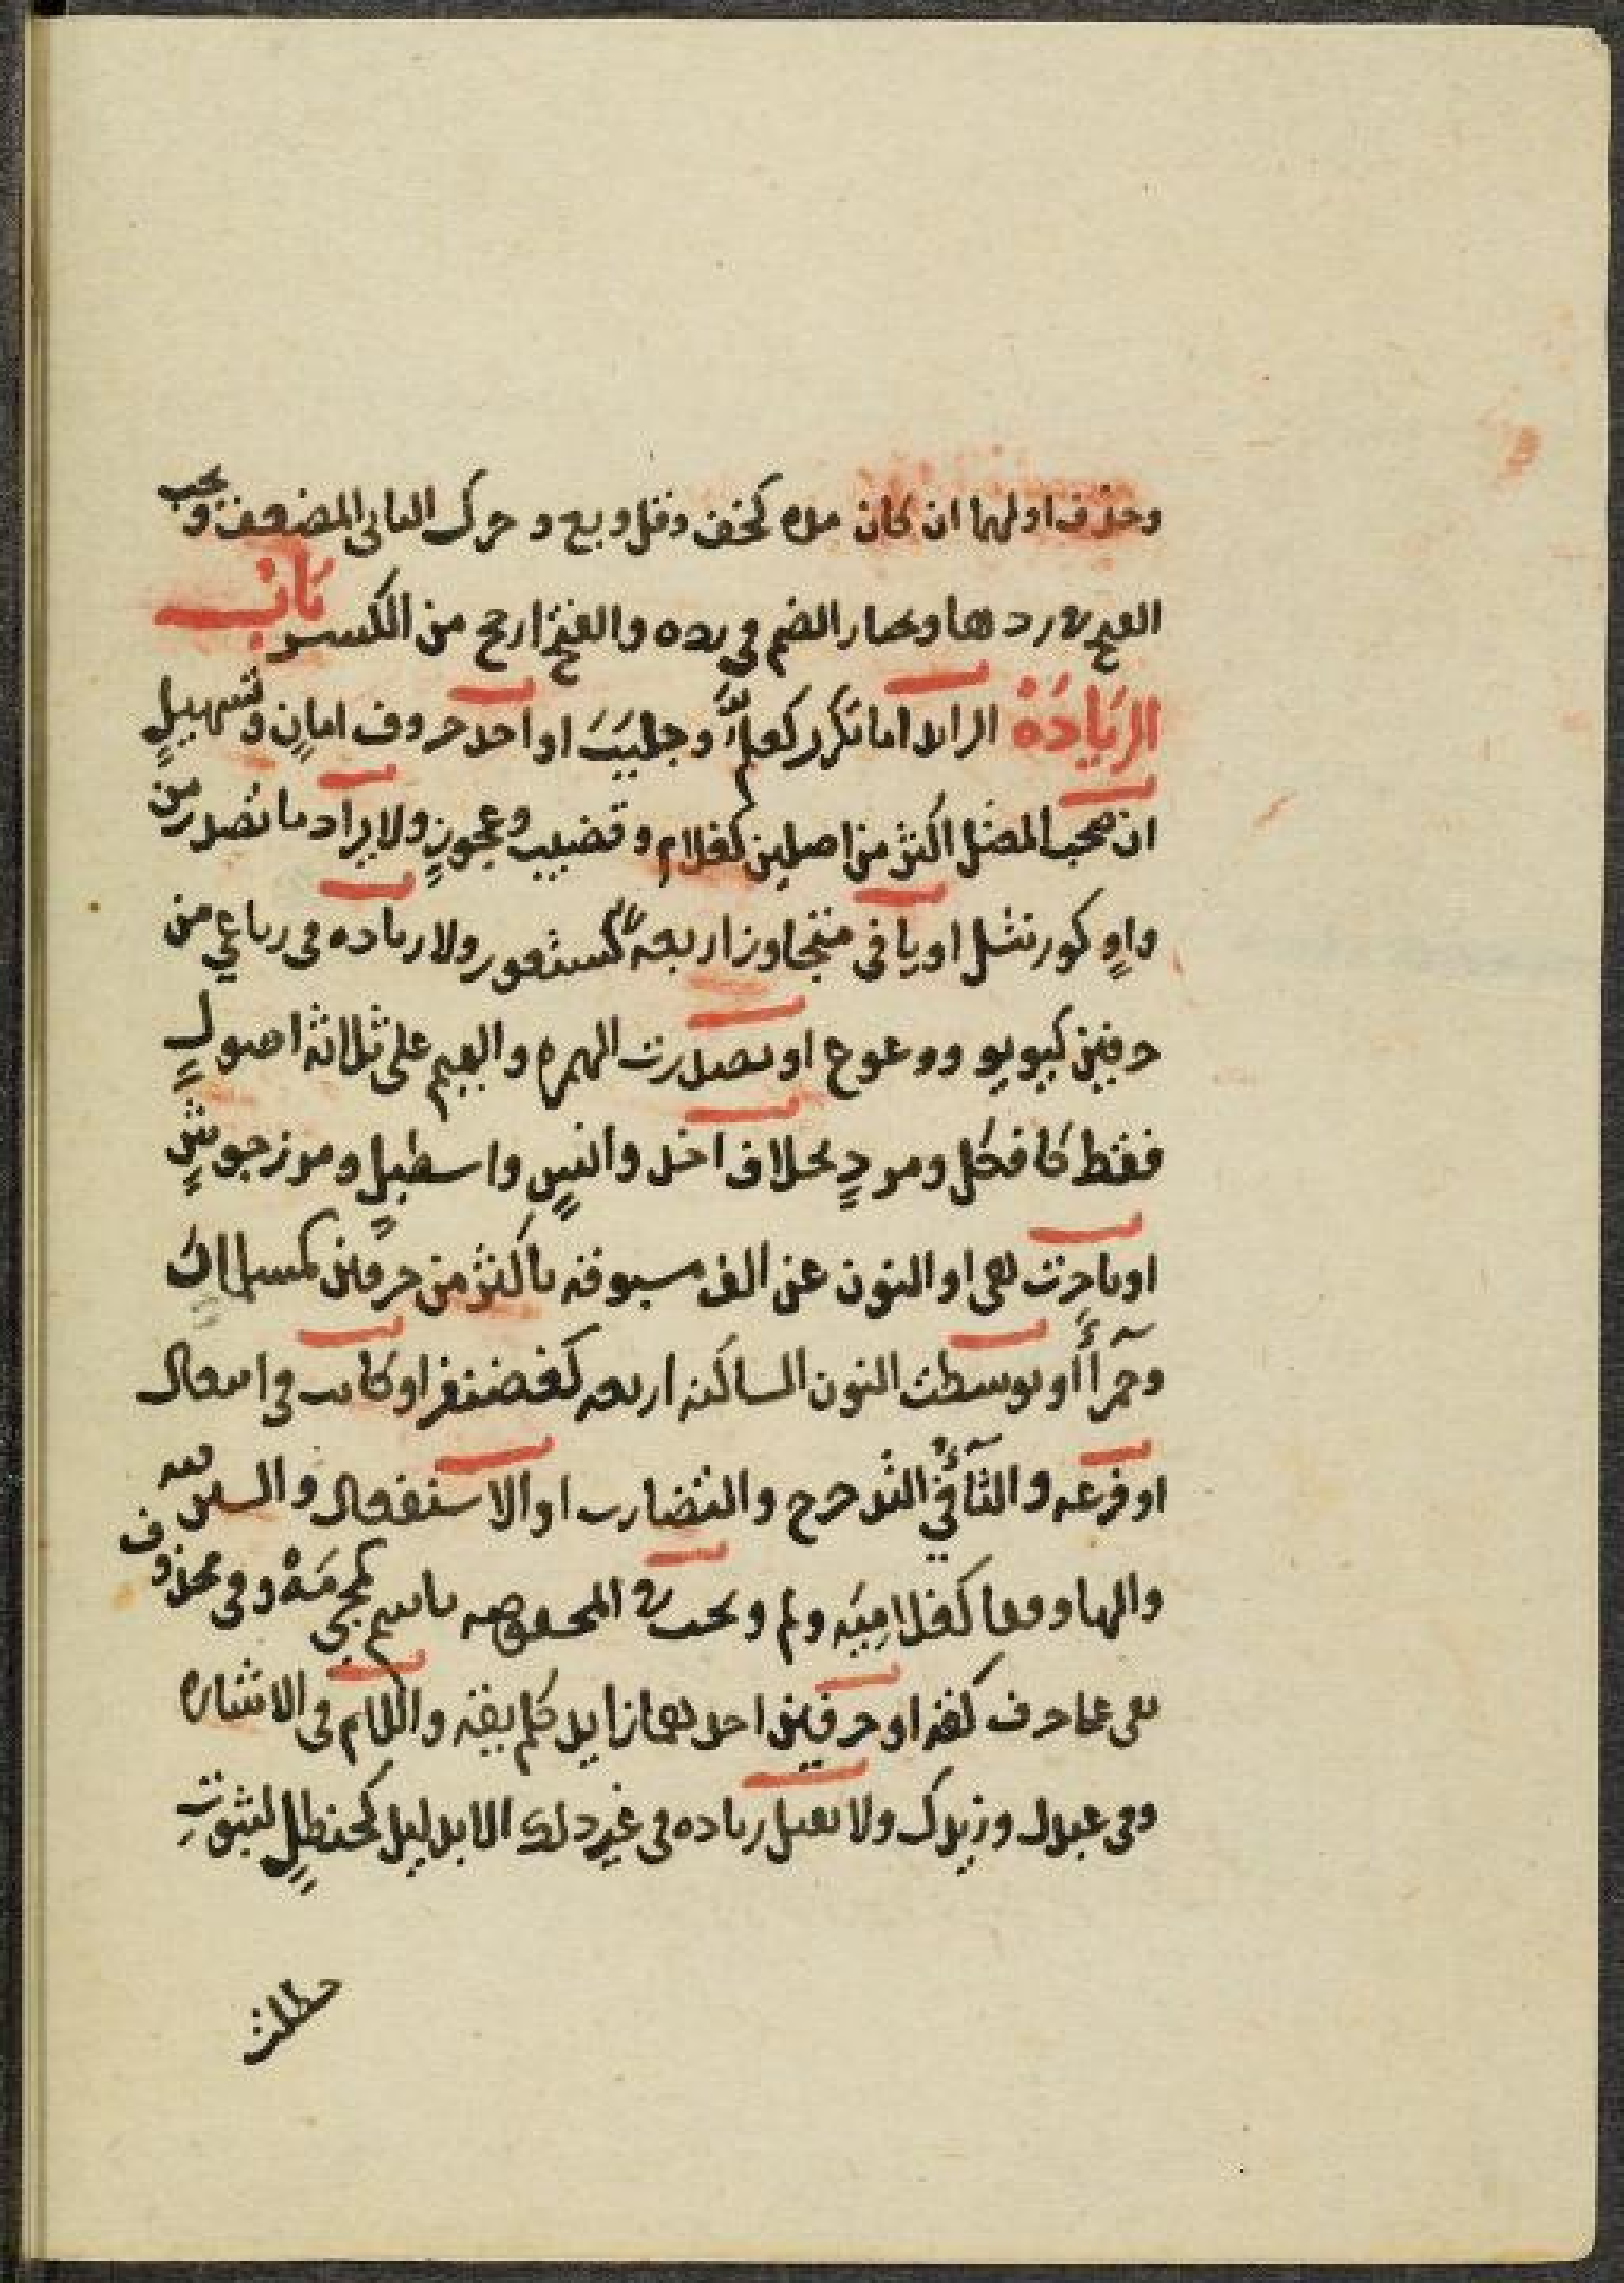 وحذف اولهما ان كان مده كخف وقل وبع وحرك الثانى المضعف ويجب
الفتح فى ردها ويختار الضم فى رده والفتح ارجح من الكسر باب
الزيادة الزائد اما تكرر كعلّم وجلبب او احد حروف امان وتسهيل
ان صحب المعتل اكثر من اصلين كغلام وقضيب وعجوز ولا يزاد ما تصدر من
واو كورنتل او يا فى متجاوز اربعة كيستعور ولا زياده فى رباعي من
حرفين كيويو ووعوع او تصدرت الهمزه والميم على ثلاثة اصول
فقط كافكل ومرد بخلاف اخذ وانيس واسطبل ومرزجوش
او تاخرت هى او النون عن الف مسبوقه باكثر من حرفين كسلمان
وحمرآء او توسطت النون الساكنه اربعه كغضنفر او كانت فى انفعال
او فرعه والتآء فى التدحرج والتضارب او الاستفعال والسين معه
والها وقفا كفلاميه ولم وتجب فى المخفوضه باسم كمجي مه وفى محذوف
بقى علی حرف كقه او حرفين احدهما زايد كلم يقه واللام فى الاشاره
وفى عبدل وزيدك ولا تقبل زياده فى غير ذلك الا بدليل كحنظل لثبوت
حظلت